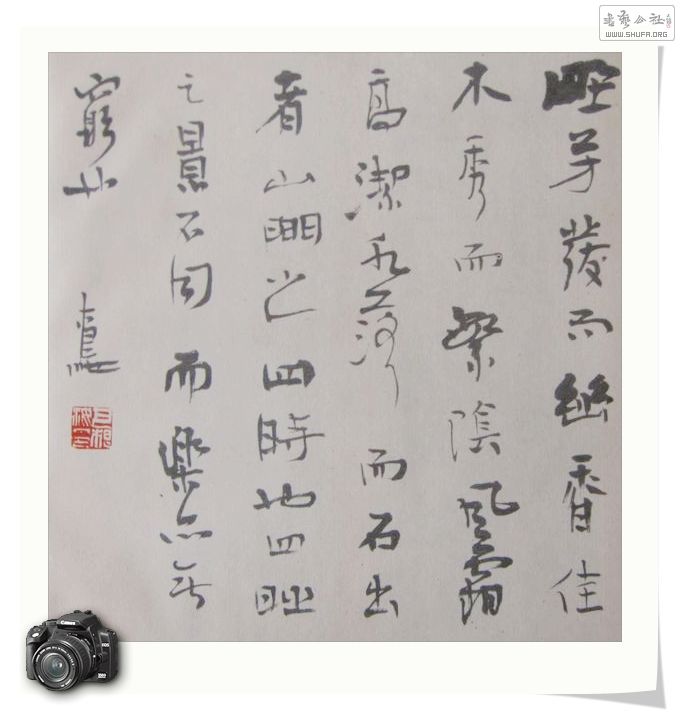 書藝公社
WWW.SHUFA.ORG
野芳發而幽香佳
木秀而繁陰風霜
高潔水落而石出
者山間之四時也四時
之景不同而樂亦无
窮也
Canon
EOS